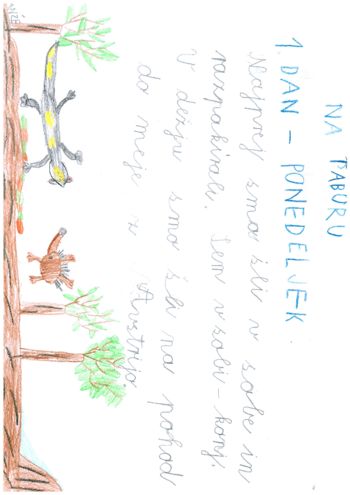 NA TABURU
1. DAN - PONEDELJEK
Najprej smo šli v sobe in
razpakirali. Sem v sobi - konj.
V dežju smo šli na pohod
do meje z Avstrijo.